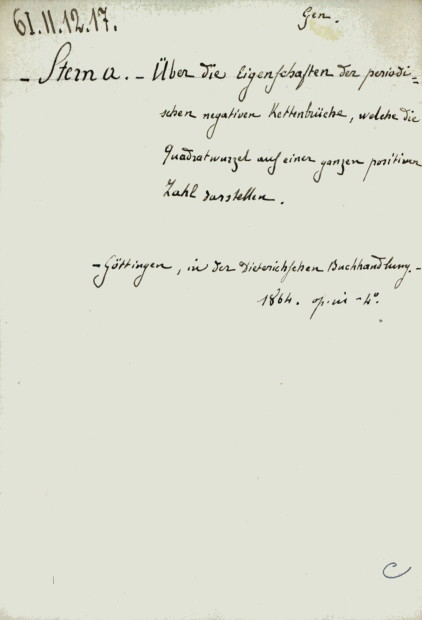 61.11.12.17.
Gen.
- Stern a. - Über die Eigenschaften der periodi=
schen negativen Kettenbrüche, welche die
Quadratwurzel auf einer ganzen positiven
Zahl darstellen.
- Göttingen, in der Dieterichschen Buchhandlung. -
1864. op. in - 4º.
C